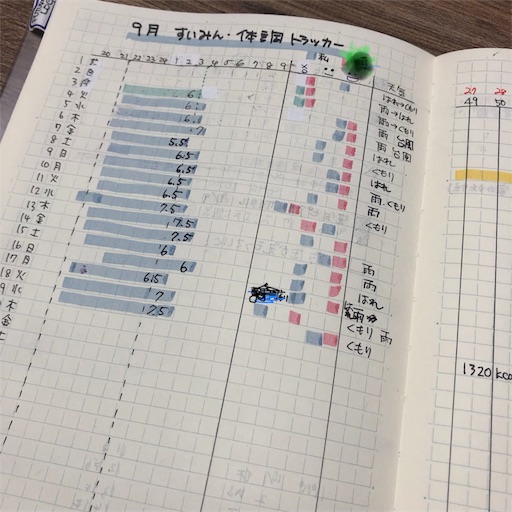 9月 すいみん・体調 トラッカー
20 21 22 23 24 1 2 3 4 5 6 7 8 9
天気
2 日
3 月 はれ→くもり
4 火 6. 雨→はれ
5 水 6. 雨→くもり
6 木 6. 雨 台風
7 金 7 雨 台風
8 土 5.5 はれ
9 日 6.5 くもり
10 月 6.5 はれ
11 火 6.5 雨、くもり
12 水 6.5 雨
13 木 7.5 くもり
14 金 7.5
15 土 7.5
16 日 6 雨
17 月 6 雨
18 火 6.5 はれ
9 水 7
木 7.5 くもり 雨
金 くもり
土
27 28
49 50
1320 kca